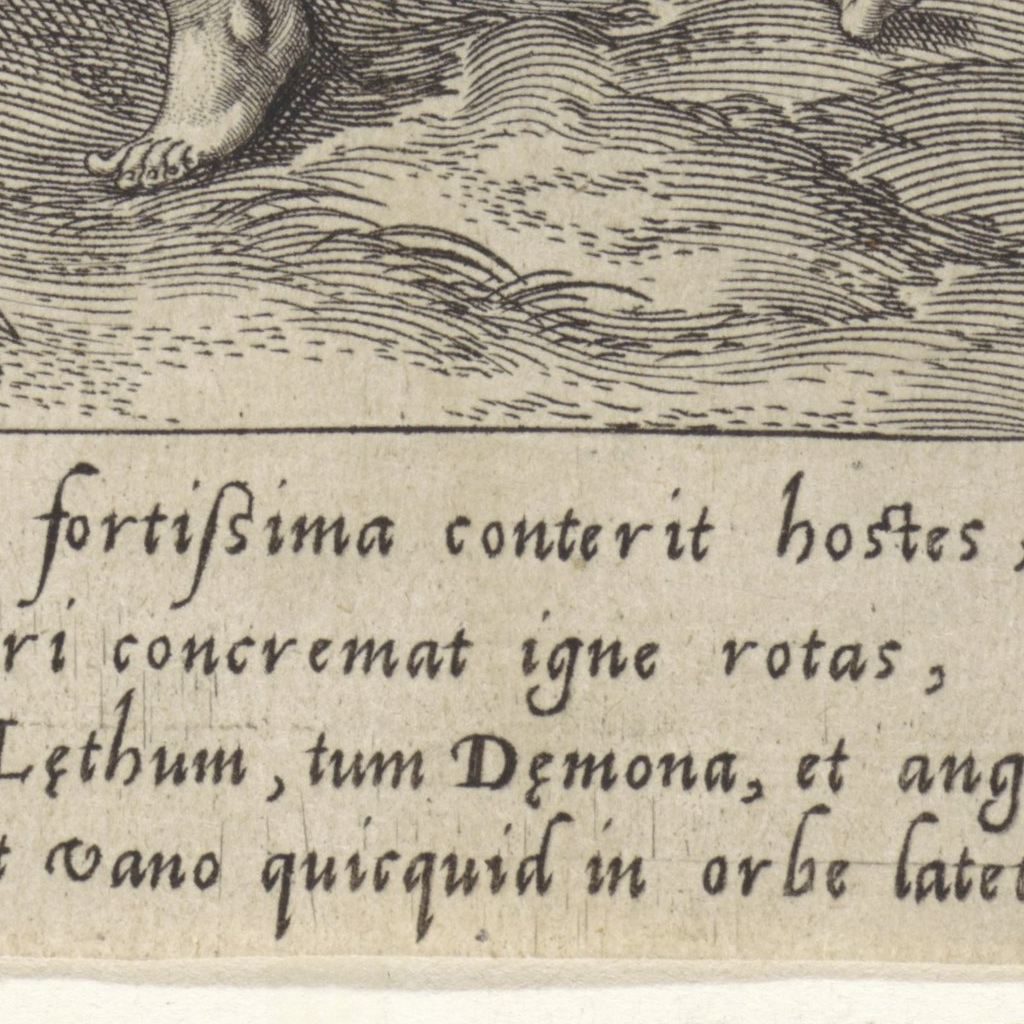 fortißima conterit hostes,
ri concremat igne rotas,
Lęthum, tum Dęmona, et ang
t vano quicquid in orbe latet